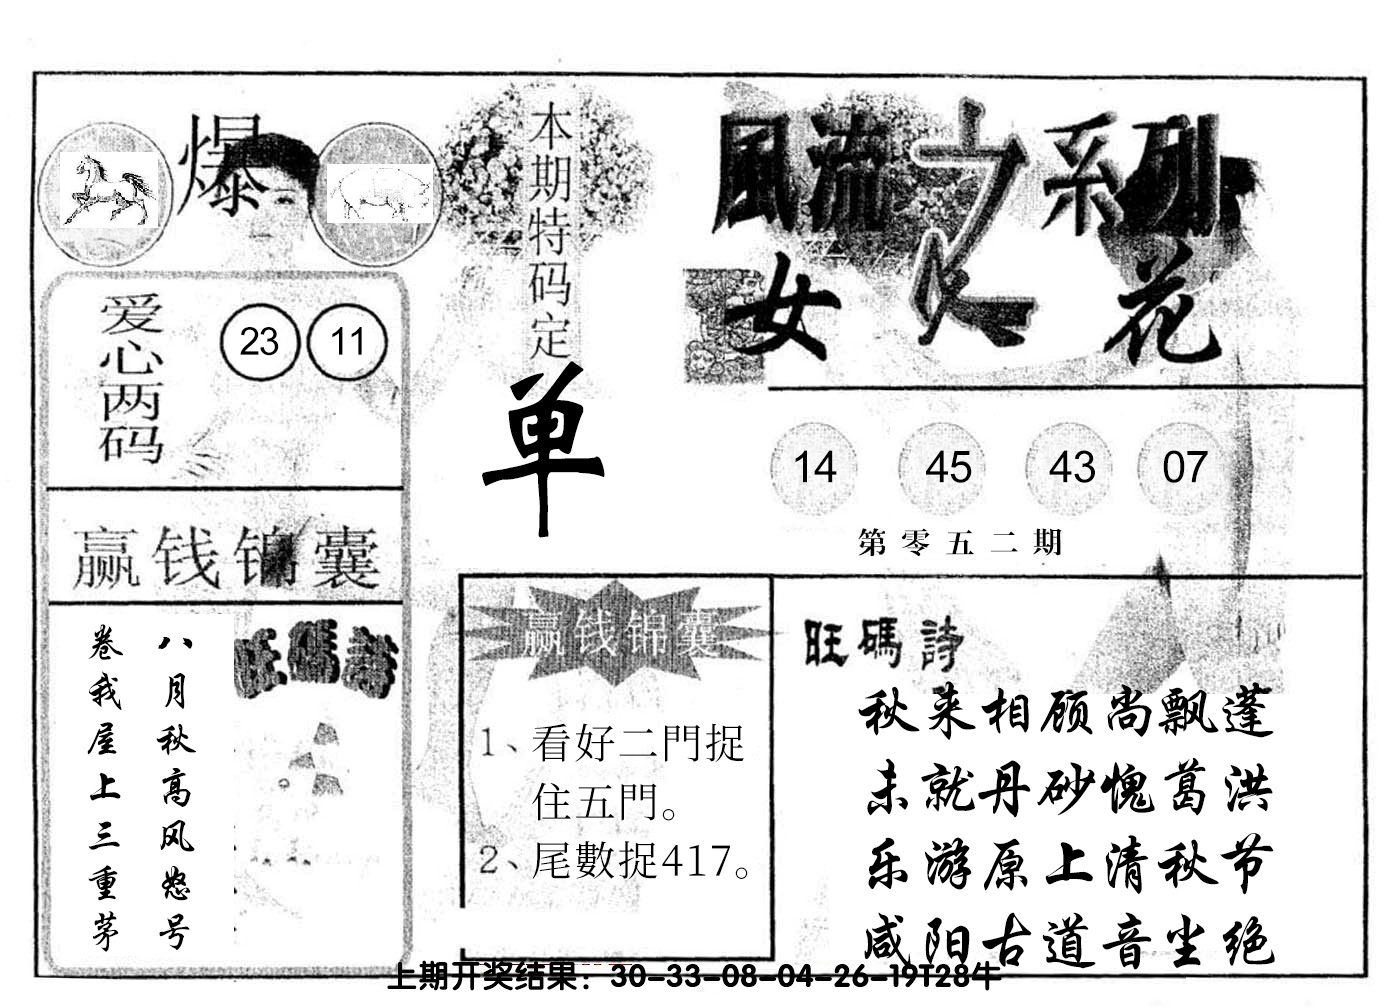 爆
本期特码定
单
風流之系列
女人花
爱心两码
23 11
14 45 43 07
第零五二期
赢钱锦囊
旺碼詩
八月秋高风怒号
卷我屋上三重茅
赢钱锦囊
1、看好二門捉
住五門。
2、尾數捉417。
旺碼詩
秋来相顾尚飘蓬
未就丹砂愧葛洪
乐游原上清秋节
咸阳古道音尘绝
上期开奖结果：30-33-08-04-26-19T28牛